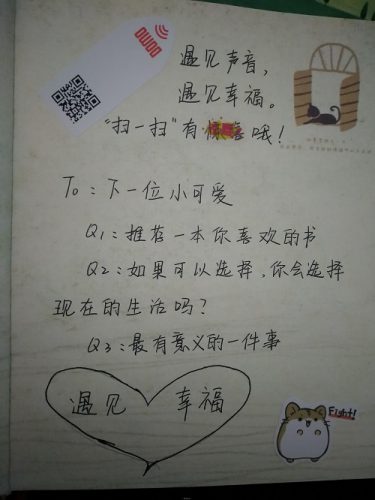 OMOO
遇见声音，
遇见幸福。
“扫一扫”有惊喜哦！
To：下一位小可爱
Q1：推荐一本你喜欢的书
Q2：如果可以选择，你会选择
现在的生活吗？
Q3：最有意义的一件事
遇见 幸福
Fight!